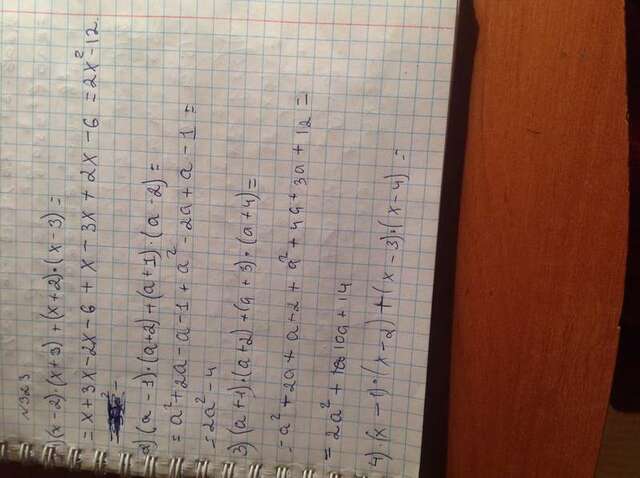 №323
1) (x-2)·(x+3)+(x+2)·(x-3)=
=x+3x-2x-6+x-3x+2x-6=2x²-12.
2) (a-1)·(a+2)+(a+1)·(a-2)=
=a²+2a-a-1+a²-2a+a-1=
=2a²-4
3) (a+1)·(a+2)+(a+3)·(a+4)=
=a²+2a+a+2+a²+4a+3a+12=
=2a²+10a+14
4) (x-1)·(x-2)+(x-3)·(x-4)=